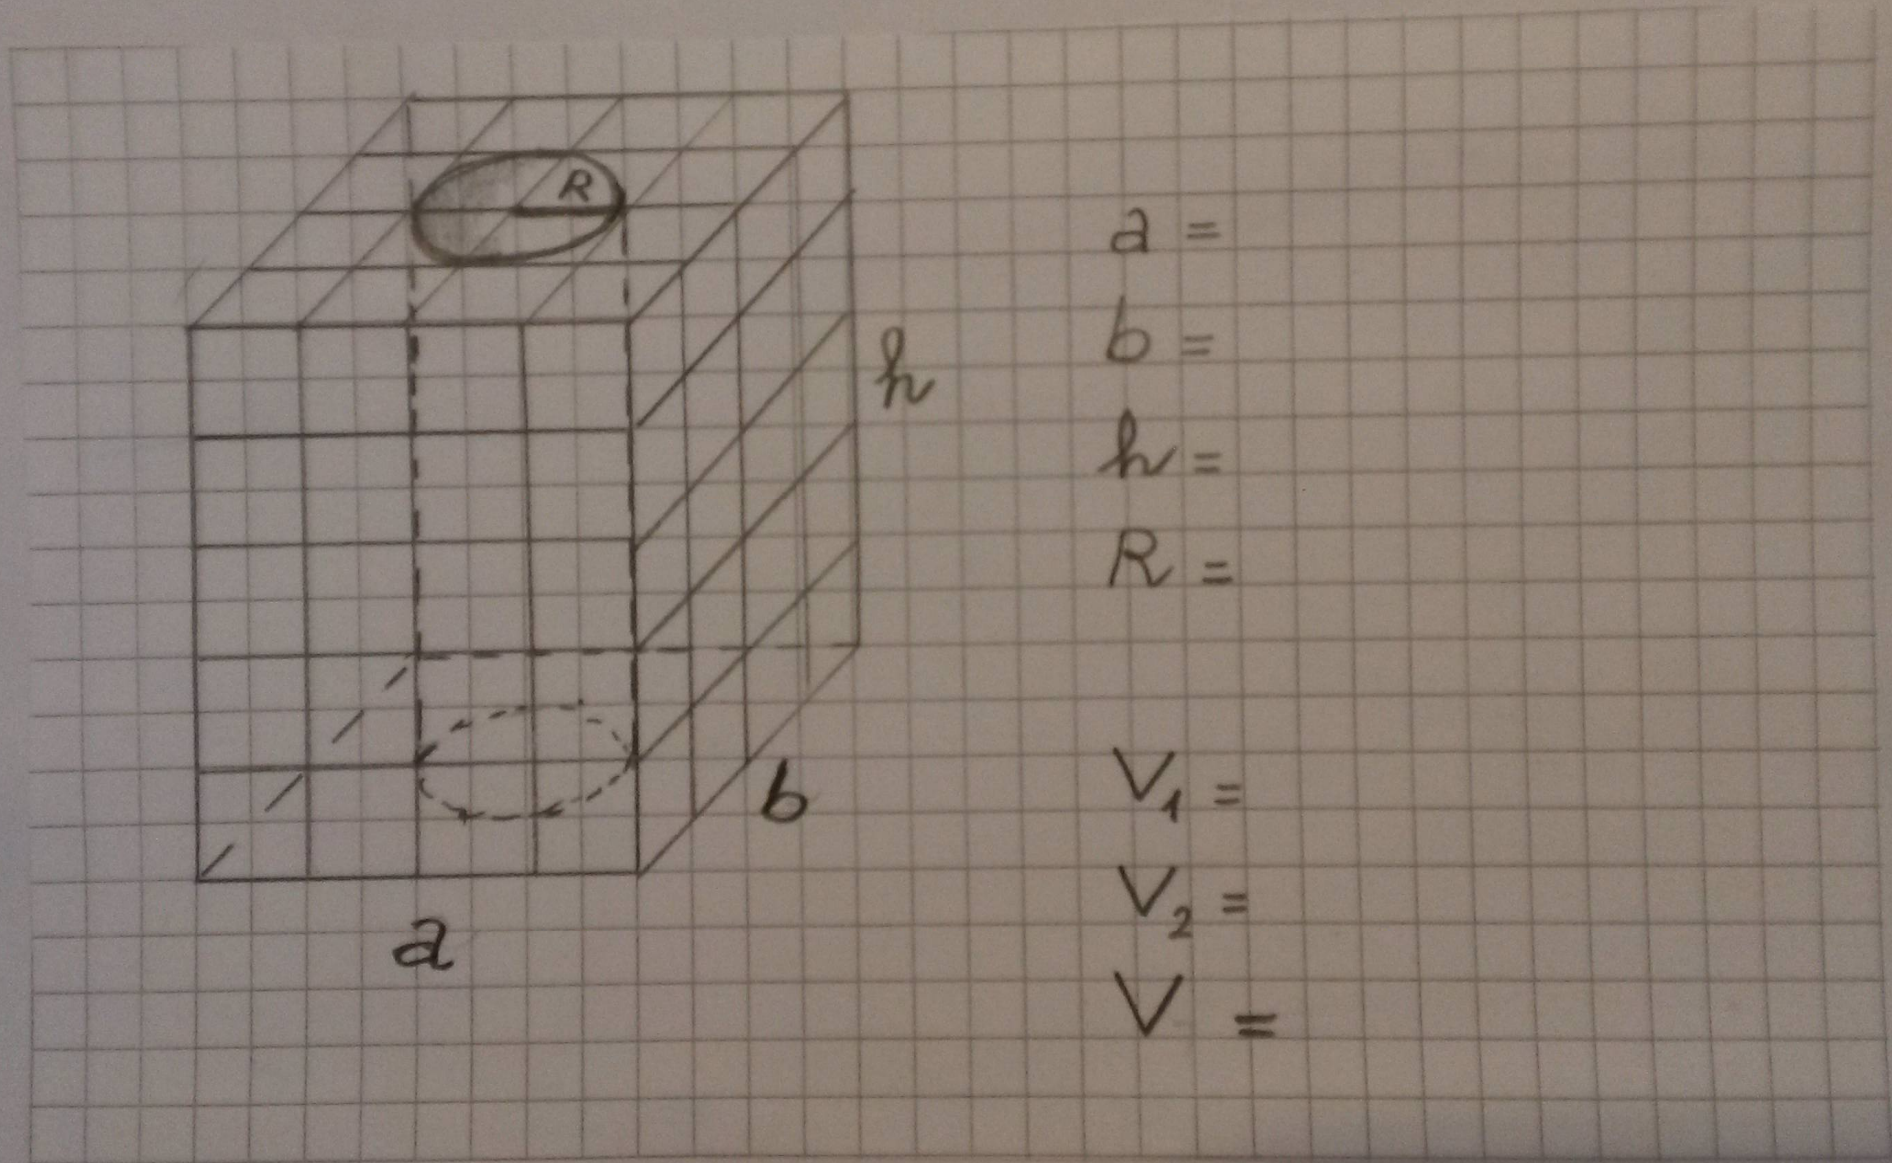 R
h
b
a
a =
b =
h =
R =
V₁ =
V₂ =
V =